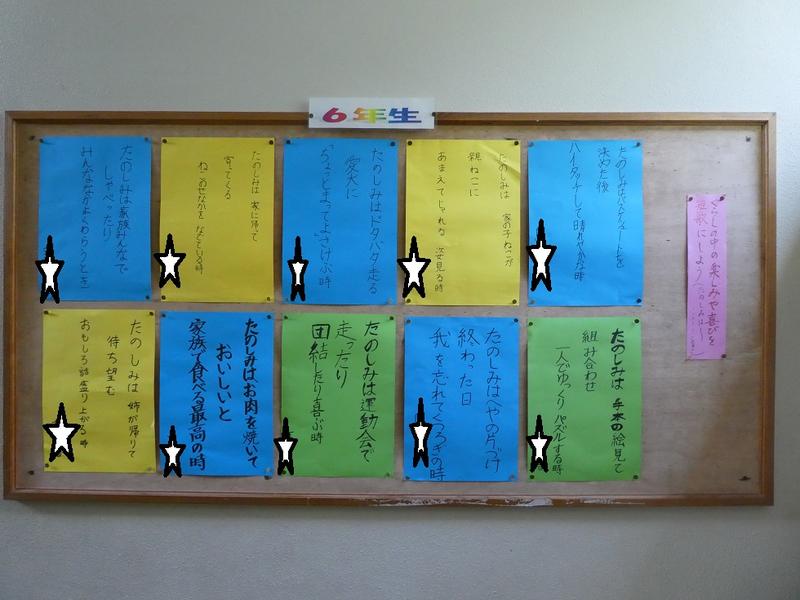 6年生
くらしの中の楽しみや喜びを
短歌にしよう
たのしみはバスケでシュートを
決めた後
ハイタッチして晴れやかな時
たのしみは 家の子ねこが
親ねこに
あまえてじゃれる 姿見る時
たのしみはドタバタ走る
愛犬に
「ちょっとまってよ」さけぶ時
たのしみは 家に帰って
寄ってくる
ねこのせなかを なでている時
たのしみは家族みんなで
しゃべったり
みんななかよくわらうとき
たのしみは 手本の絵見て
組み合わせ
一人でゆっくりパズルする時
たのしみはへやの片づけ
終わった日
我を忘れてくつろぎの時
たのしみは運動会で
走ったり
団結したり喜ぶ時
たのしみはお肉を焼いて
おいしいと
家族で食べる最高の時
たのしみは 姉が帰りて
待ち望む
おもしろ話盛り上がる時